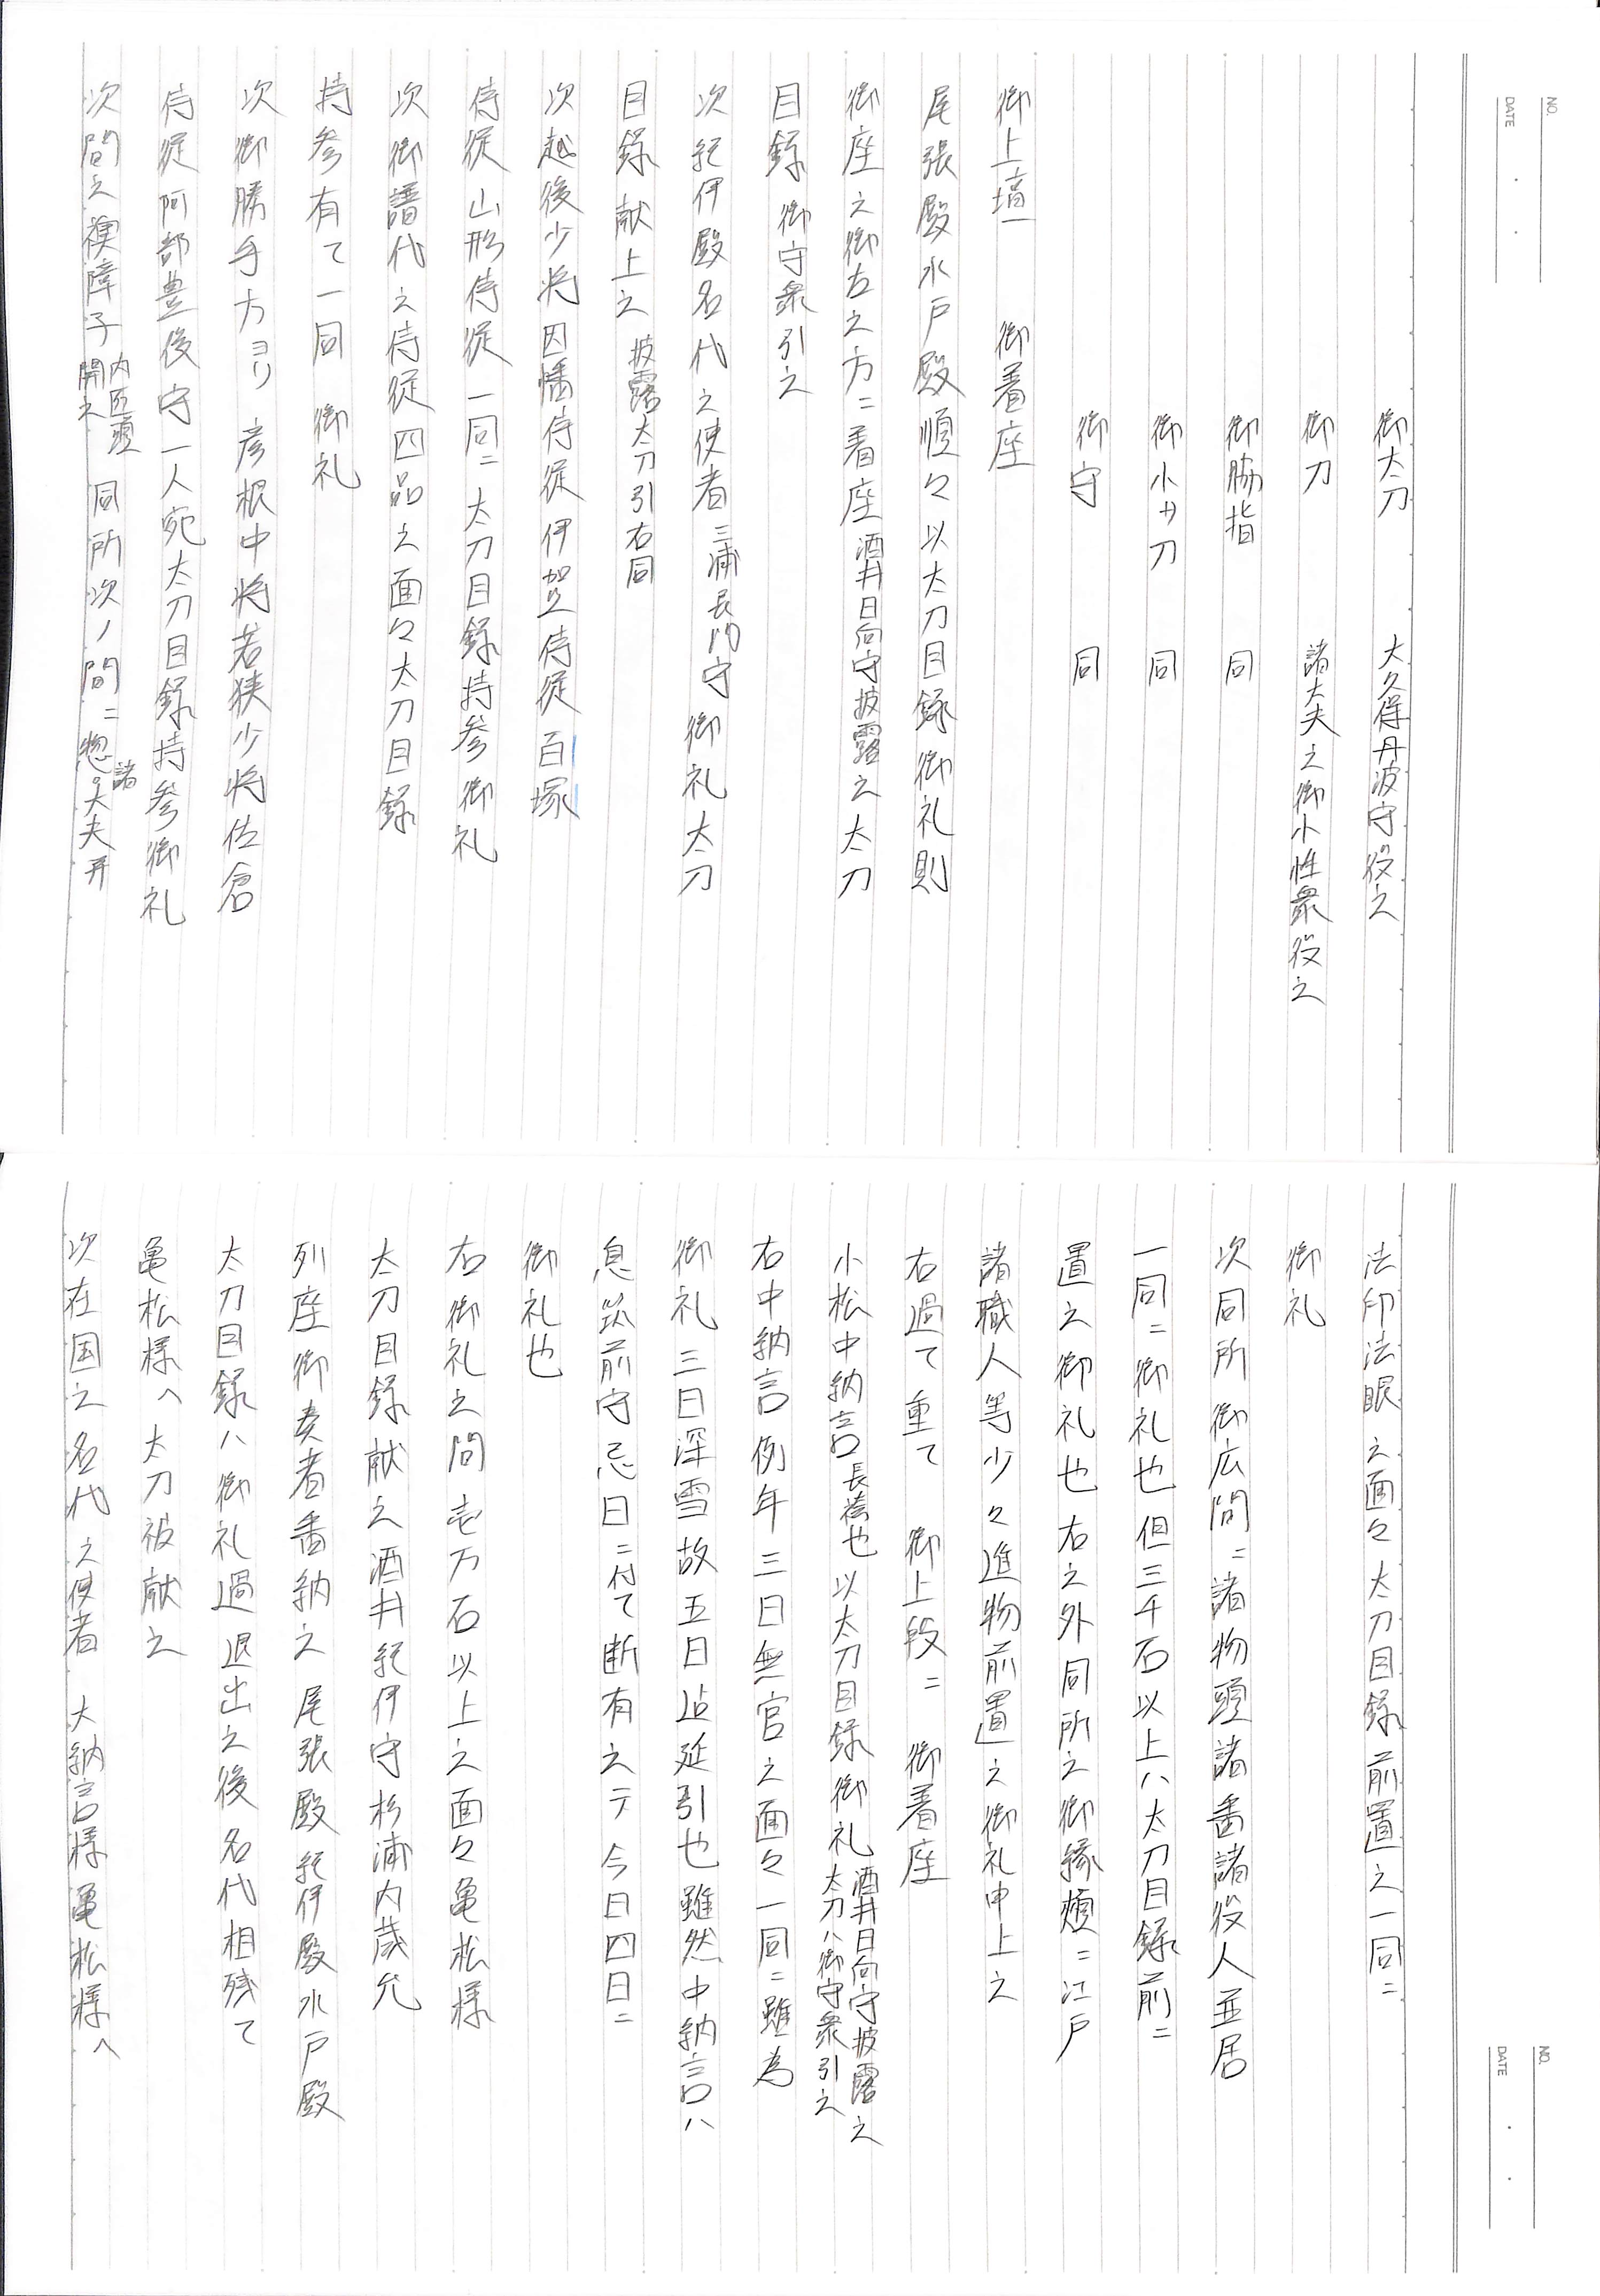 NO.
DATE
御太刀　大久保丹波守役之
御刀　諸大夫之御小性衆役之
御脇指　同
御小サ刀　同
御守　同
御上壇　御着座
尾張殿水戸殿順々以太刀目録御礼則
御座之御左之方ニ着座 酒井日向守披露之太刀
目録御守衆引之
次紀伊殿名代之使者 三浦長門守 御礼太刀
目録献上之 披露太刀引右同
次越後少将因幡侍従伊賀侍従百塚
侍従山形侍従一同ニ太刀目録持参御礼
次御譜代之侍従四品之面々太刀目録
持参有て一同御礼
次御勝手方ヨリ彦根中将若狭少将佐倉
侍従阿部豊後守一人宛太刀目録持参御礼
次間之襖障子 内匠頭 開之 同所次ノ間ニ惣。諸大夫并
NO.
DATE
法印法眼之面々太刀目録前置之一同ニ
御礼
次同所御広間ニ諸物頭諸番諸役人並居
一同ニ御礼也但三千石以上ハ太刀目録前ニ
置之御礼也右之外同所之御縁頬ニ江戸
諸職人等少々進物前置之御礼申上之
右過て重て　御上段ニ　御着座
小松中納言 長袴也 以太刀目録御礼 酒井日向守披露之 太刀ハ御守衆引之
右中納言例年三日無官之面々一同ニ雖為
御礼三日深雪故五日迠延引也雖然中納言ハ
息筑前守忌日ニ付て断有之テ今日四日ニ
御礼也
右御礼之間壱万石以上之面々亀松様
太刀目録献之酒井紀伊守杉浦内蔵允
列座御奏者番納之尾張殿紀伊殿水戸殿
太刀目録ハ御礼過退出之後名代相残て
亀松様へ太刀被献之
次在国之名代之使者　大納言様亀松様へ